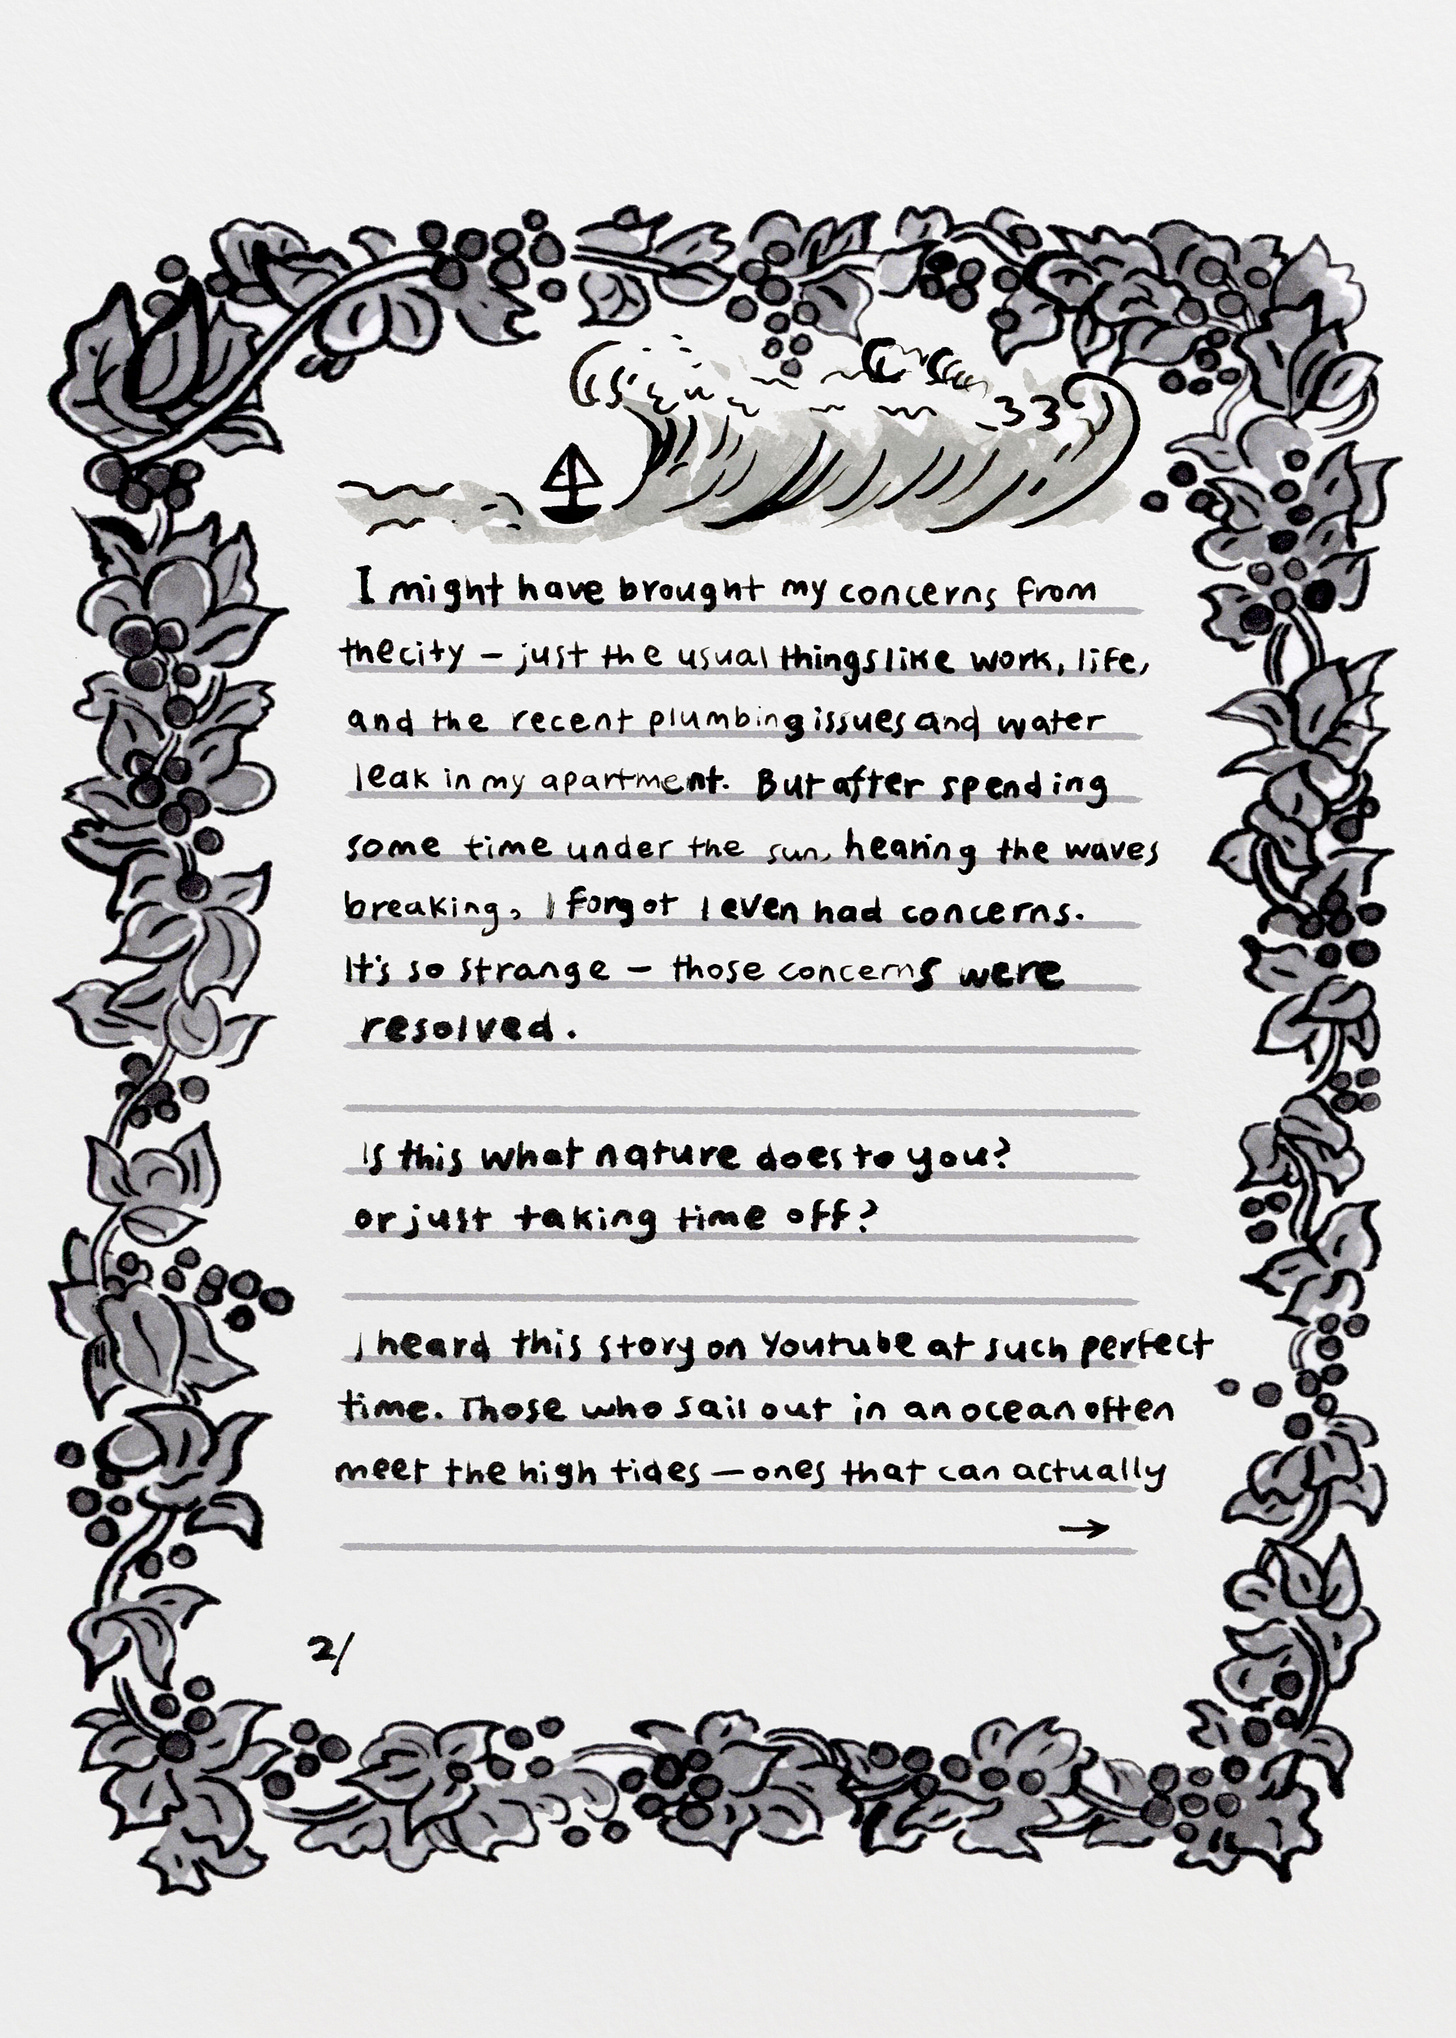 I might have brought my concerns from
the city – just the usual things like work, life,
and the recent plumbing issues and water
leak in my apartment. But after spending
some time under the sun, hearing the waves
breaking, I forgot I even had concerns.
It's so strange – those concerns were
resolved.
Is this what nature does to you?
or just taking time off?
I heard this story on Youtube at such perfect
time. Those who sail out in an ocean often
meet the high tides – ones that can actually
→
2/